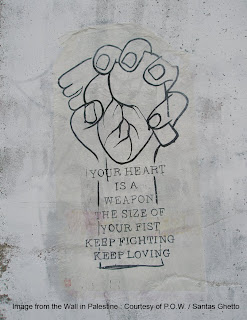 YOUR HEART
IS A
WEAPON
THE SIZE OF
YOUR FIST
KEEP FIGHTING
KEEP LOVING
Image from the Wall in Palestine : Courtesy of P.O.W. / Santas Ghetto